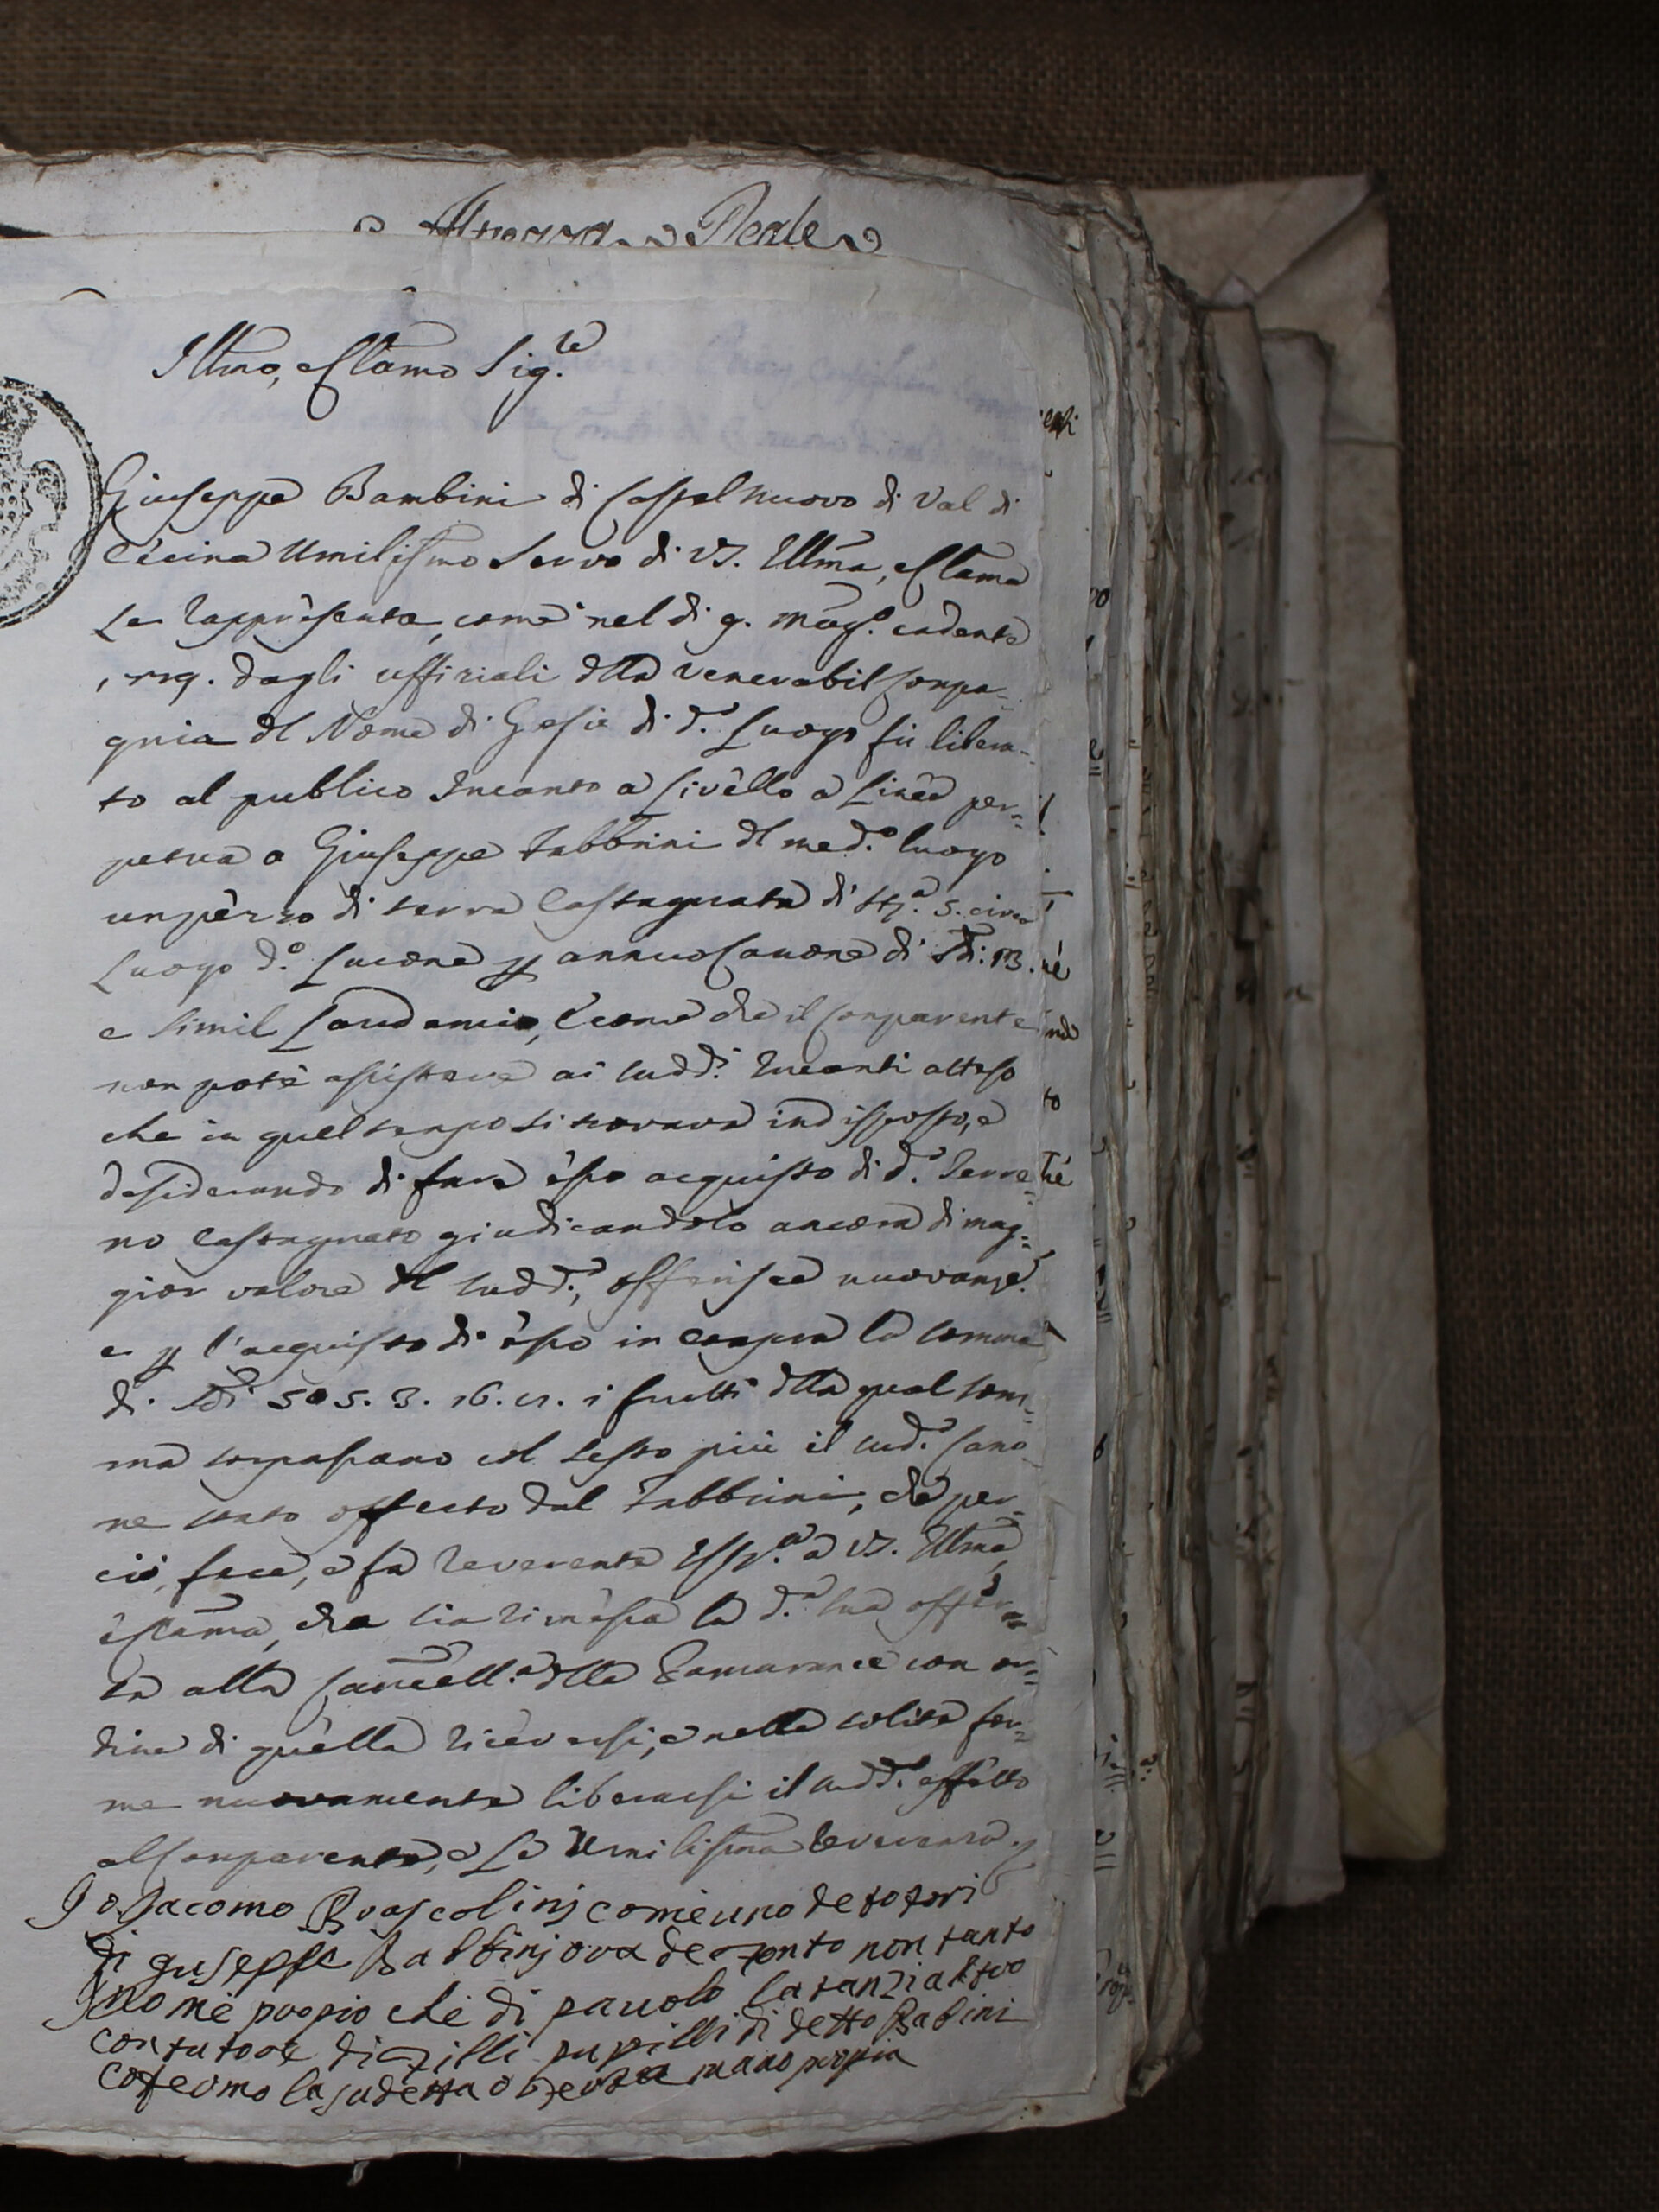 Altezza Reale
Illmo, e Clamo Sig.re
Giuseppe Bambini di Castelnuovo di Val di
Cecina Umilissmo Servo di VS. Illma, e Clama
Le rappresenta, come nel dì 9. Magg.o cadente
dagli uffiziali dlla Venerabil Compa-
gnia dl Nome di Gesù di d.o Luogo fù libera-
to al publico Incanto a Livello a Linea per-
petua a Giuseppe Fabbrini dl med.o luogo
un pèzzo di terra Castagnata di St.a 5. circa
Luogo d.o Lucone p annuo Canone di
e simil Laudemio, e come che il Comparente
non potè assistere ai sudd.i Incanti atteso
che in quel tempo si trovava indisposto, e
desiderando di fare èsso acquisto di d.o Terre-
no Castagnato giudicandolo ancora di mag-
gior valore dl sudd.o, offerisce nuovam.e
e p l'acquisto di èsso in compra la somma
di 505. 3. 16. i frutti dlla qual som-
ma sorpassano col sesto più il sud.o Cano
ne stato offerto dal Fabbrini, che per
ciò, fece, e fa reverente Ist.a a VS. Illma,
e Clama, che sia rimèssa la d.a sua offer-
ta alla Cancell.a dlle Pomarance con or-
dine di quèlla riceversi, e nelle solite for-
me nuovamente liberarsi il sudd.o effetto
al Comparente, e Le Umilissima reverenza
Io Jacomo come uno de totori
di guseppe Babbinj ora defonto non tanto
In nome propio che di pauolo altro
contutore di filli pupilli di detto Babini
cofermo la sudetta oferta mano propia